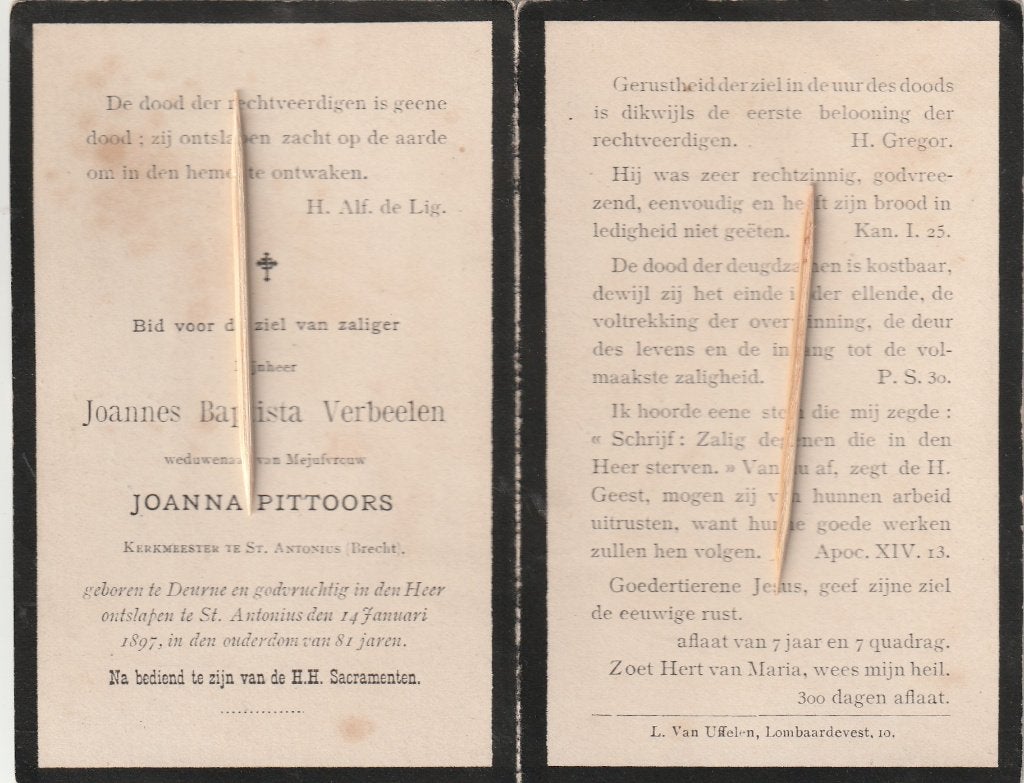 De dood der rechtveerdigen is geene
dood : zij ontslapen zacht op de aarde
om in den hemel te ontwaken.
H. Alf. de Lig.
Bid voor de ziel van zaliger
Mijnheer
Joannes Baptista Verbeelen
weduwenaar van Mejufvrouw
JOANNA PITTOORS
KERKMEESTER TE ST. ANTONIUS (Brecht).
geboren te Deurne en godvruchtig in den Heer
ontslapen te St. Antonius den 14 Januari
1897, in den ouderdom van 81 jaren.
Na bediend te zijn van de H.H. Sacramenten.
Gerustheid der ziel in de uur des doods
is dikwijls de eerste belooning der
rechtveerdigen. H. Gregor.
Hij was zeer rechtzinnig, godvree-
zend, eenvoudig en heeft zijn brood in
ledigheid niet geëten. Kan. I. 25.
De dood der deugdzamen is kostbaar,
dewijl zij het einde is der ellende, de
voltrekking der overwinning, de deur
des levens en de ingang tot de vol-
maakste zaligheid. P. S. 30.
Ik hoorde eene stem die mij zegde :
« Schrijf : Zalig degenen die in den
Heer sterven. » Van nu af, zegt de H.
Geest, mogen zij van hunnen arbeid
uitrusten, want hunne goede werken
zullen hen volgen. Apoc. XIV. 13.
Goedertierene Jesus, geef zijne ziel
de eeuwige rust.
aflaat van 7 jaar en 7 quadrag.
Zoet Hert van Maria, wees mijn heil.
300 dagen aflaat.
L. Van Uffelen, Lombaardevest, 10.